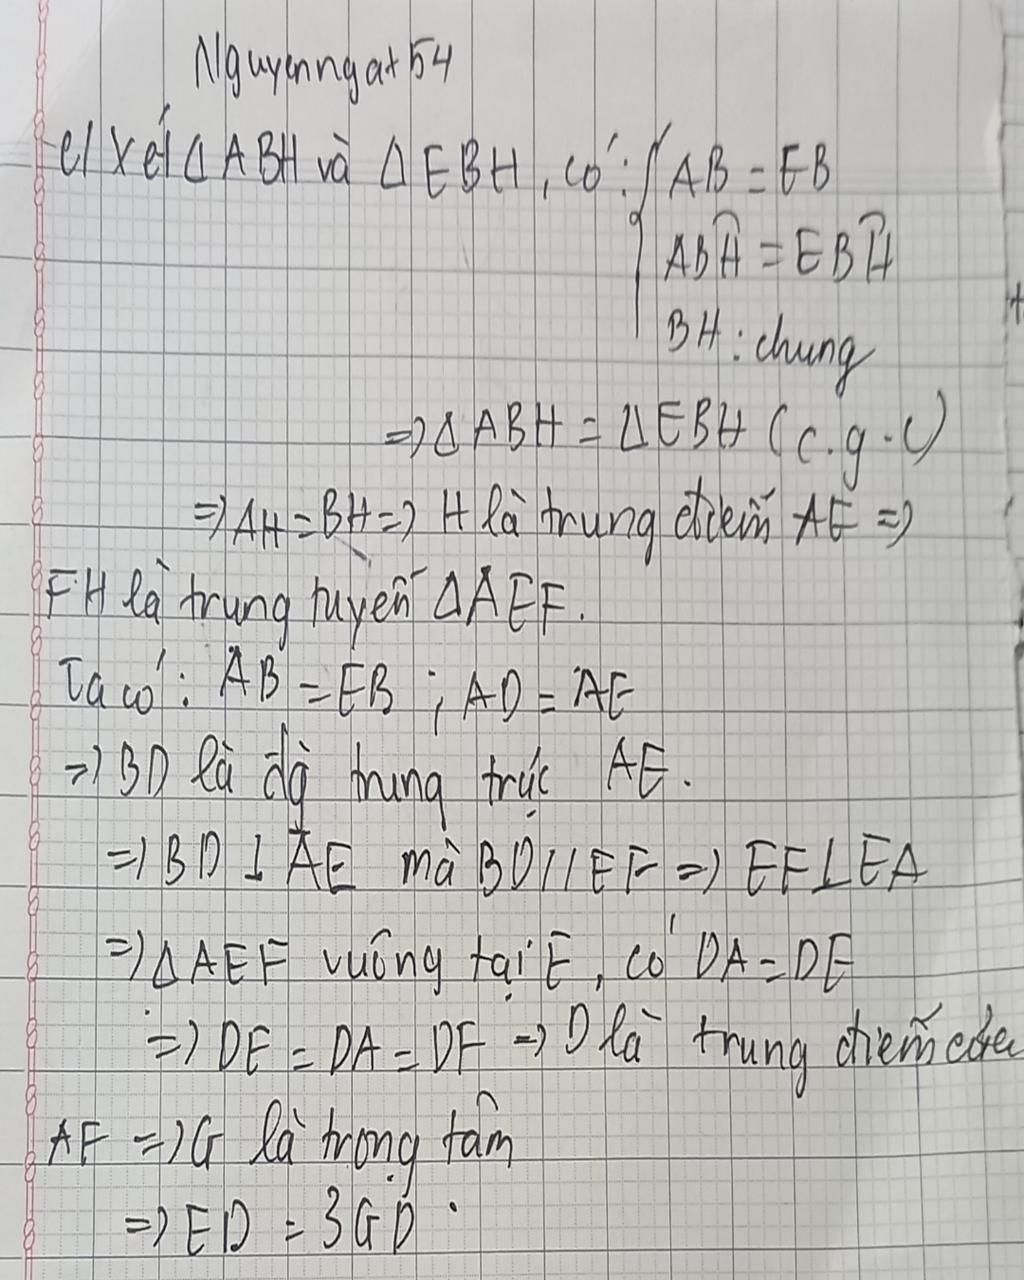 Nguyenngat54
c/ Xét Δ ABH và Δ EBH, có: { AB = EB
ABĤ = EBĤ
BH : chung
=> Δ ABH = Δ EBH (c.g.c)
=> AH = BH => H là trung điểm AE =>
FH là trung tuyến Δ AEF.
Ta có: AB = EB ; AD = AE
=> BD là đg trung trực AE.
=> BD ⊥ AE mà BD // EF => EF ⊥ EA
=> Δ AEF vuông tại E, có DA = DE
=> DE = DA = DF => D là trung điểm của
AF => G là trọng tâm
=> ED = 3GD.